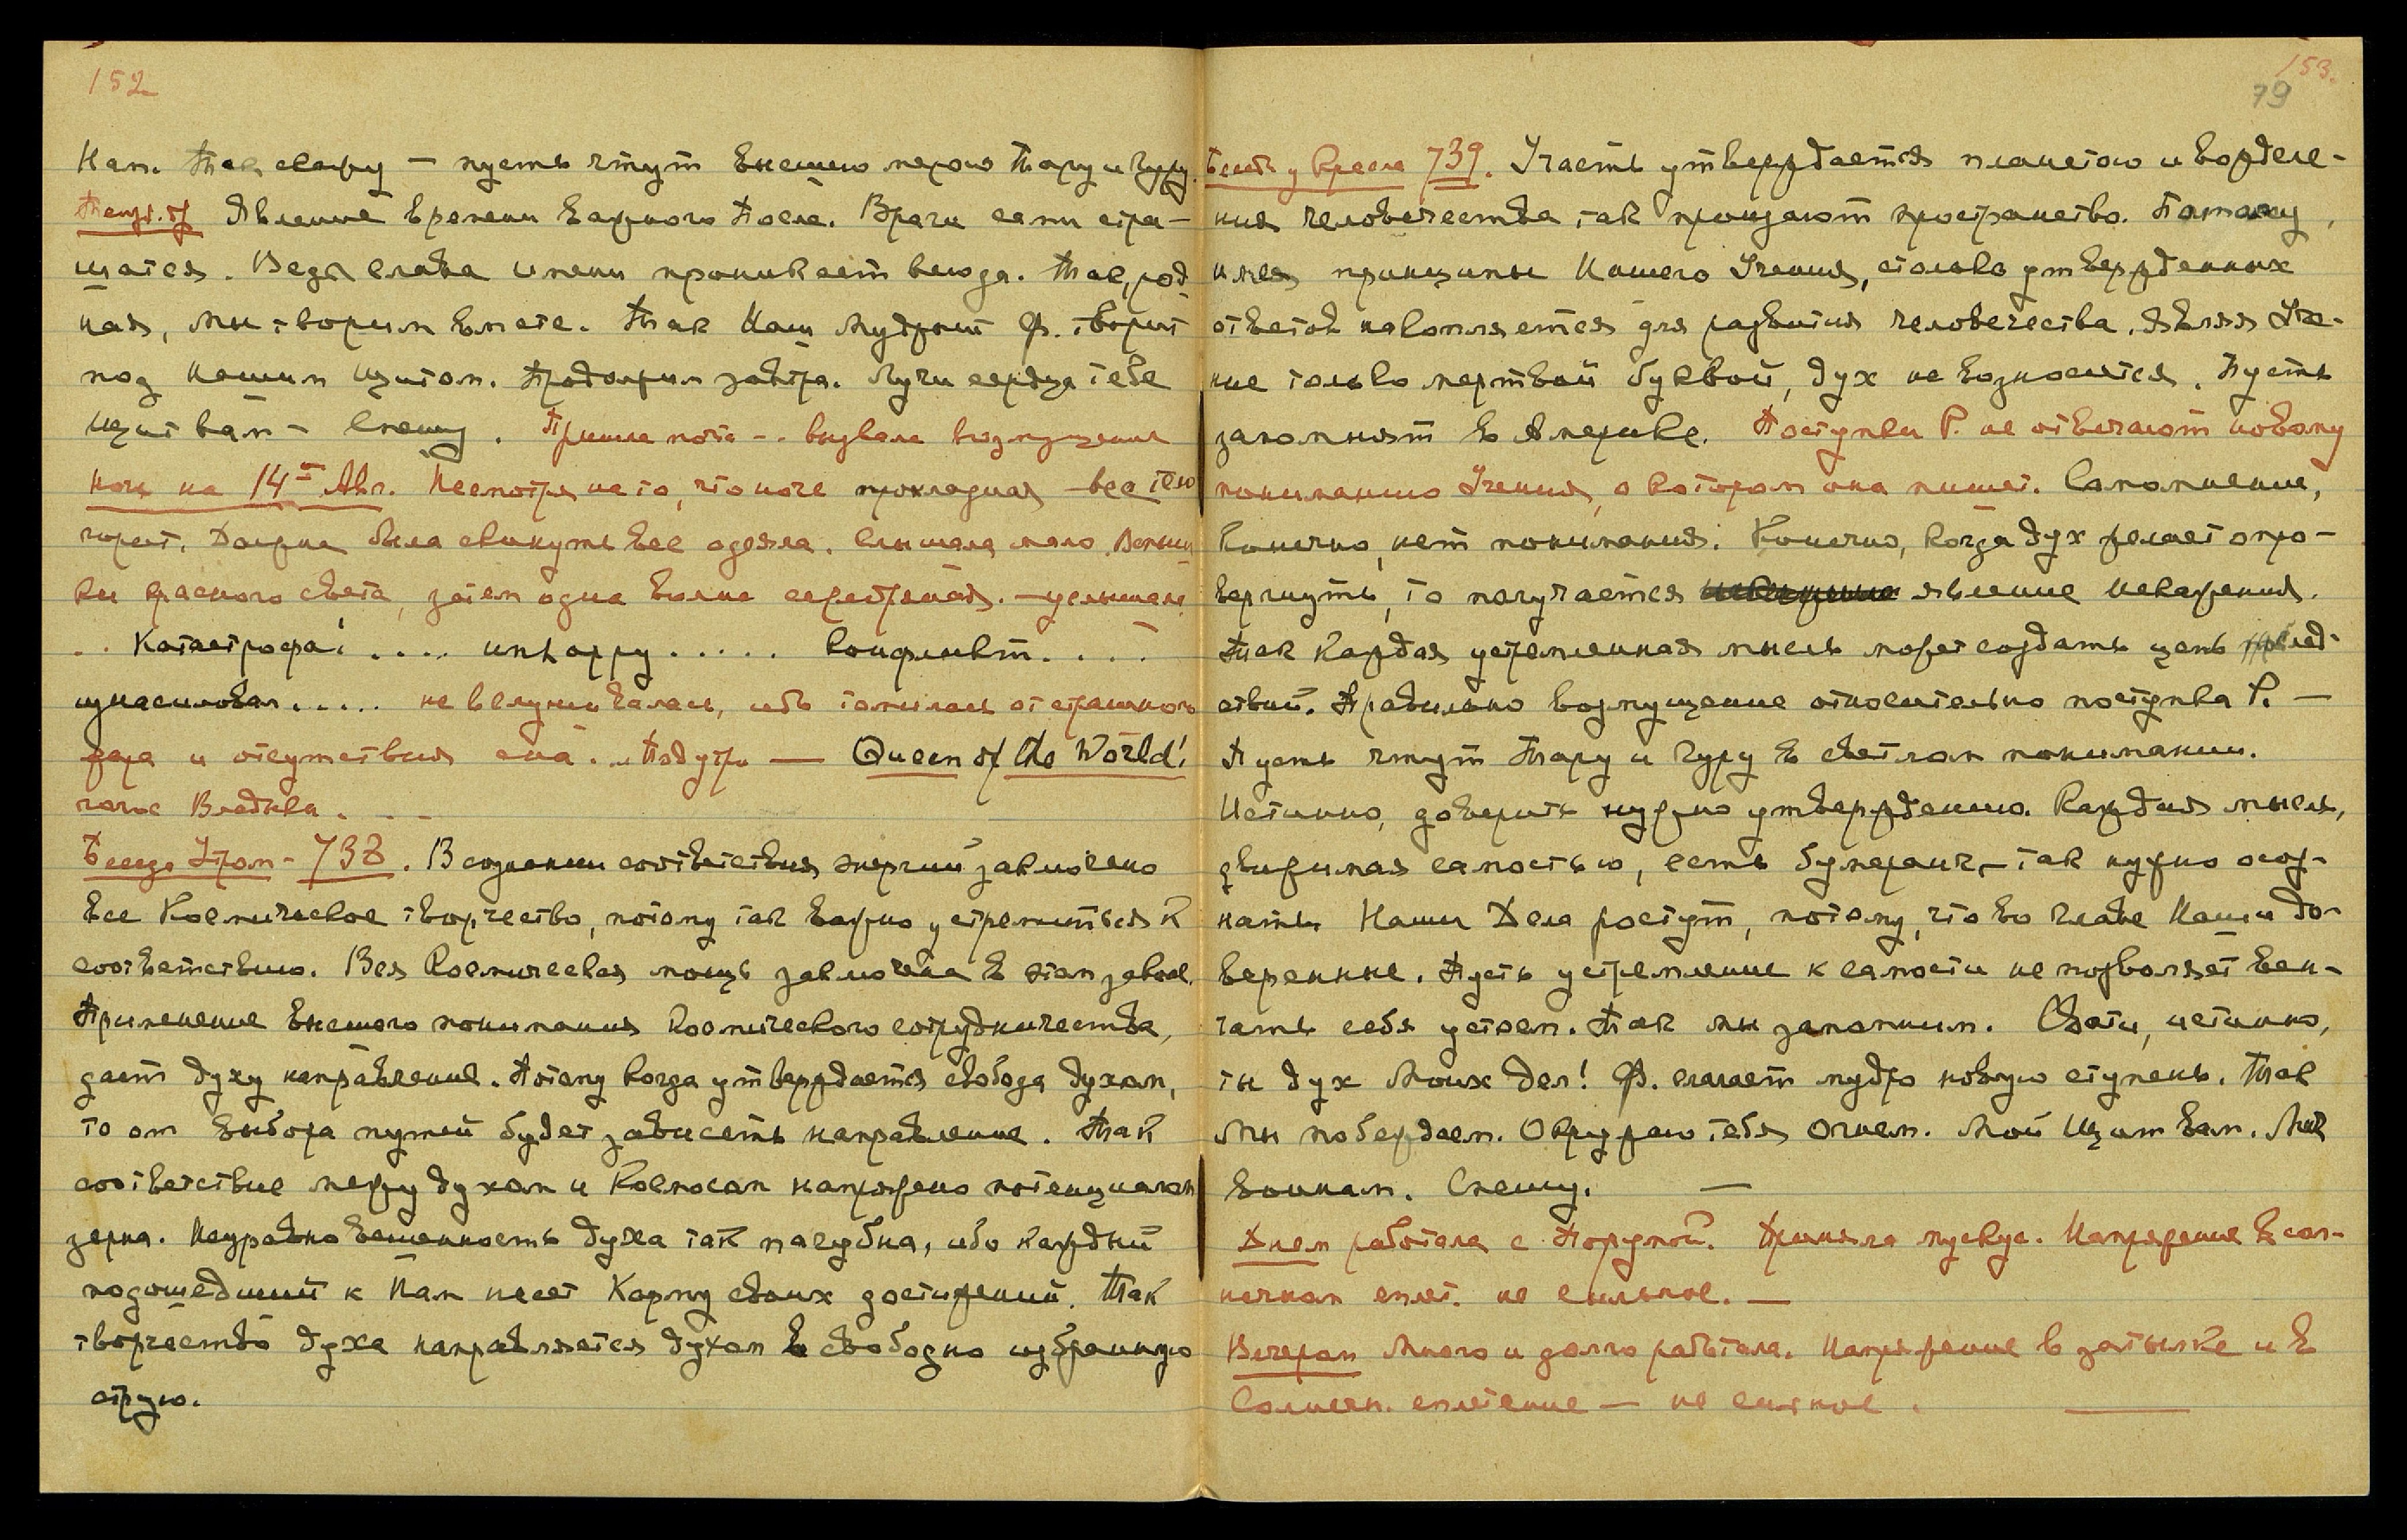 152
Нам. Так скажу — пусть чтут высшею мерою Тару и Гуру.
Явление времени важного после. Враги сами стра-
шатся. Ведь слава имени проникает всюду. Так, род-
ная, мы творим вместе. Так Наш мудрый Ф. творит
под Нашим Щитом. Продолжим завтра. Лучи сердца тебе
Щит вам — Спешу. Пришла почта — вызвала возмущение
Ночь на 14-ое Авг. Несмотря на то, что ночь прохладная — все тело
горит. Должна была скинуть все одеяла. Слышала мало. Вспыш-
ки красного света, затем одна волна серебряная. — услышала
.. Катастрофа! .... .... конфликт....
изнасиловал..... не вслушивалась, ибо томилась от страшного
жара и отсутствия сна. Под утро — Queen of the World!
голос Владыки. . .
Беседа Утром — 738. В сознании соответствия энергий заключено
все Космическое творчество, потому так важно устремиться к
соответствию. Вся Космическая мощь заключена в этом законе.
Применение высшего понимания Космического сотрудничества,
дает духу направление. Потому когда утверждается свобода духом,
то от выбора путей будет зависеть направление. Так
соответствие между духом и Космосом напряжено потенциалом
зерна. Неуравновешенность духа так пагубна, ибо каждый
подошедший к Нам несет Карму своих достижений. Так
творчество духа направляется духом в свободно избранную
струю.
153.
79
739. Участь утверждается планетою и вожделе-
ния человечества так пронзают пространство. Потому,
имея принципы Нашего Учения, столько утвержденных
ответов накопляется для развития человечества. Являя Уче-
ние только мертвой буквой, дух не возносится. Пусть
запомнят в Америке. Поступки Р. не отвечают новому
пониманию Учения, о котором она пишет. Самомнение,
Конечно, нет понимания. Конечно, когда дух желает опро-
вергнуть, то получается явление искажения.
Так каждая устремленная мысль может создать цепь след-
ствий. Правильно возмущение относительно поступка Р. —
Пусть чтут Тару и Гуру в светлом понимании.
Истинно, доверить нужно утверждению. Каждая мысль,
движимая самостью, есть бумеранг, — так нужно осоз-
нать. Наши Дела растут, потому, что во главе Наши до-
веренные. Пусть устремление к самости не позволяет вен-
чать себя успехом. Так мы запомним. Свати, истинно,
ты дух Моих дел! Ф. слагает мудро новую ступень. Так
мы побеждаем. Окружаю тебя Огнем. Мой Щит вам. Мой
воинам. Спешу. —
Днем работала с Порумой. Приняла мускус. Напряжение в сол-
нечном сплет. не сильное. —
Вечером много и долго работала. Напряжение в затылке и в
Солнечн. сплетение — не сильное.